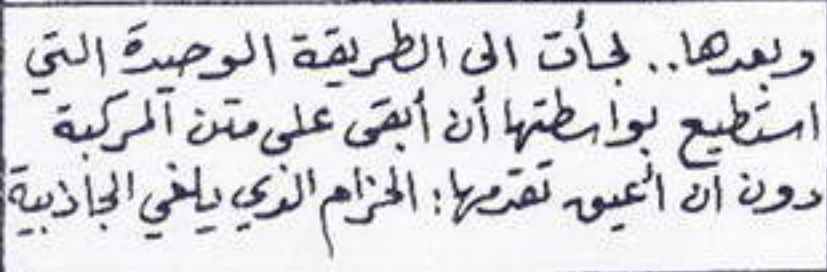 وبعدها.. لجأت الى الطريقة الوحيدة التي
استطيع بواسطتها أن أبقى على متن المركبة
دون ان أعيق تقدمها: الحزام الذي يلغي الجاذبية